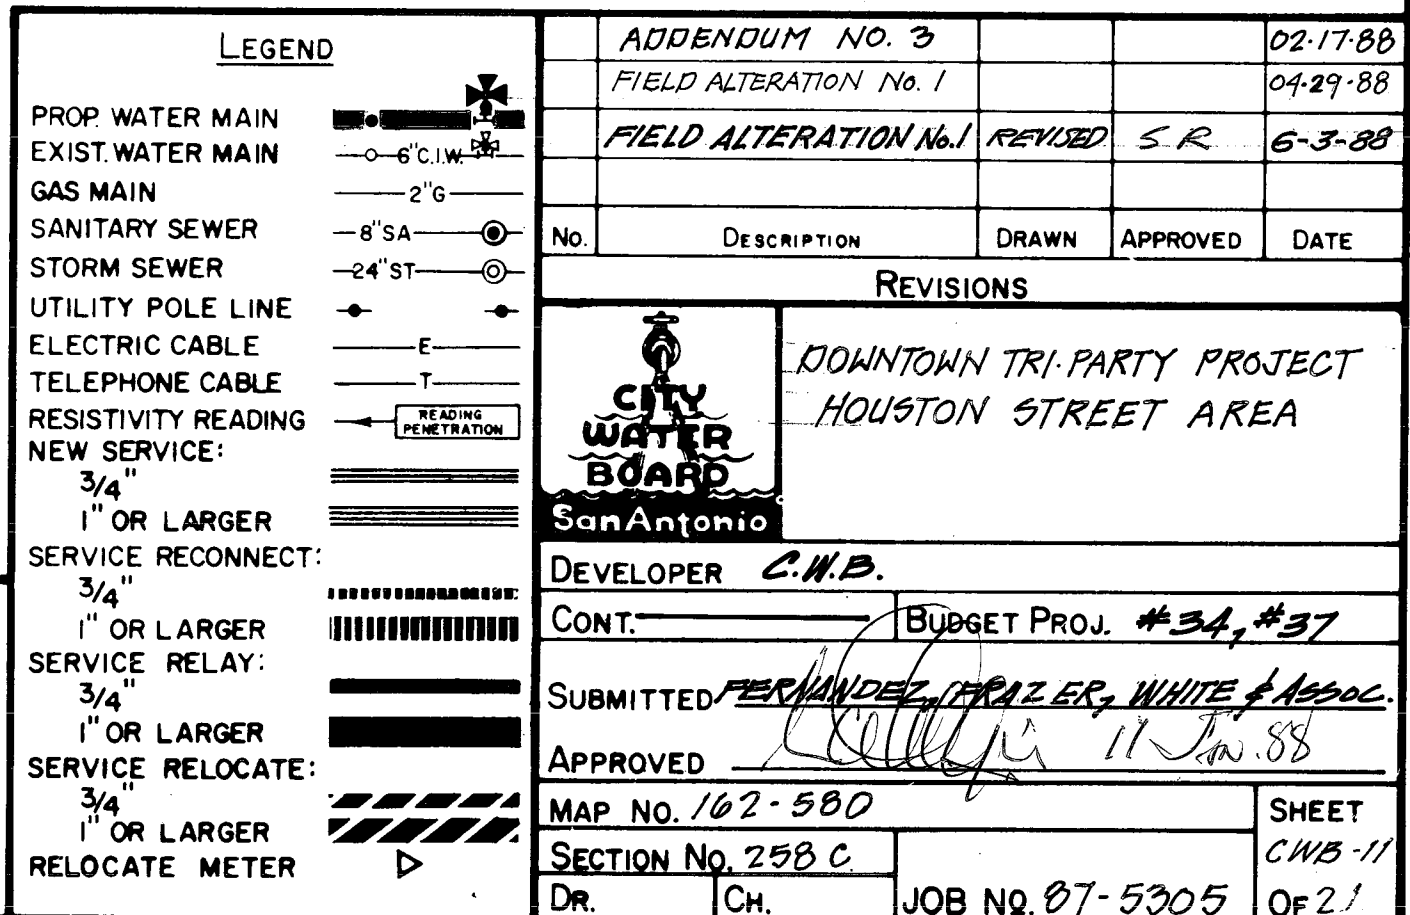 LEGEND
PROP. WATER MAIN
EXIST. WATER MAIN 6"C.I.W.
GAS MAIN 2"G
SANITARY SEWER 8"SA
STORM SEWER 24"ST
UTILITY POLE LINE
ELECTRIC CABLE E
TELEPHONE CABLE T
RESISTIVITY READING READING
PENETRATION
NEW SERVICE:
3/4"
1" OR LARGER
SERVICE RECONNECT:
3/4"
1" OR LARGER
SERVICE RELAY:
3/4"
1" OR LARGER
SERVICE RELOCATE:
3/4"
1" OR LARGER
RELOCATE METER
ADDENDUM NO. 3 02·17·88
FIELD ALTERATION No. 1 04·29·88
FIELD ALTERATION No.1 REVISED S R 6-3-88
No. DESCRIPTION DRAWN APPROVED DATE
REVISIONS
CITY
WATER
BOARD
San Antonio
DOWNTOWN TRI·PARTY PROJECT
HOUSTON STREET AREA
DEVELOPER C.W.B.
CONT. BUDGET PROJ. #34, #37
SUBMITTED FERNANDEZ, FRAZER, WHITE & ASSOC.
APPROVED 11 Jan. 88
MAP NO. 162-580
SECTION NO. 258 C
DR. CH. JOB NO. 87-5305
SHEET
CWB-11
OF 21